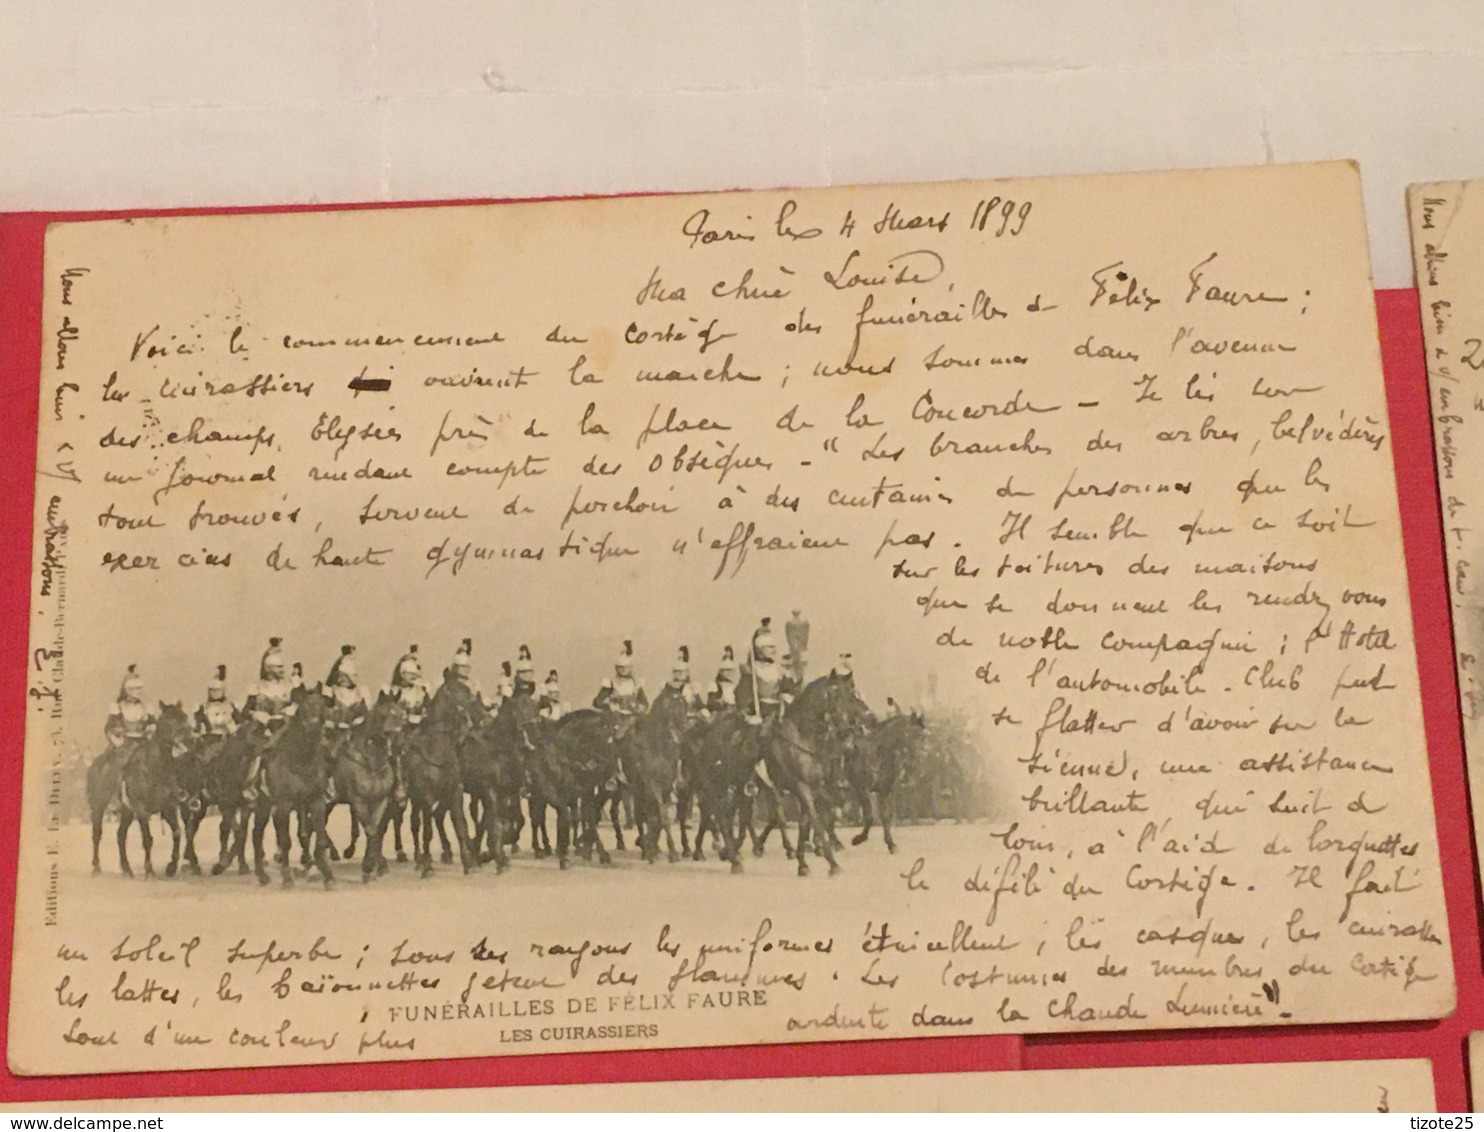 Paris le 4 Mars 1899
Ma chère Louise,
Voici le commencement du cortège des funérailles de Félix Faure ;
les cuirassiers ouvrent la marche ; nous sommes dans l'avenue
des champs Elysées près de la place de la Concorde - Je lis sur
un journal rendant compte des obsèques - "Les branches des arbres, belvédères
tout trouvés, servent de perchoir à des centaines de personnes que les
exercices de haute gymnastique n'effraient pas. Il semble que ce soit
sur les toitures des maisons
que se donnent les rendez vous
de noble compagnie ; l'Hotel
de l'automobile-Club peut
se flatter d'avoir sur le
sienne, une assistance
brillante, qui suit de
loin, à l'aide de lorgnettes
le défilé du Cortège. Il fait
un soleil superbe ; sous ses rayons les uniformes étincellent ; les casques, les cuirasses
les lattes, les baïonnettes jettent des flammes. Les Costumes des membres du Cortège
sont d'une couleur plus ardente dans la chaude Lumière".
FUNÉRAILLES DE FÉLIX FAURE
LES CUIRASSIERS
Nous allons bien & v/ embrassons. E. J.
Editions E. Le Deley, 73, Rue Claude-Bernard
Nous allons bien & v/ embrassons
tizote25